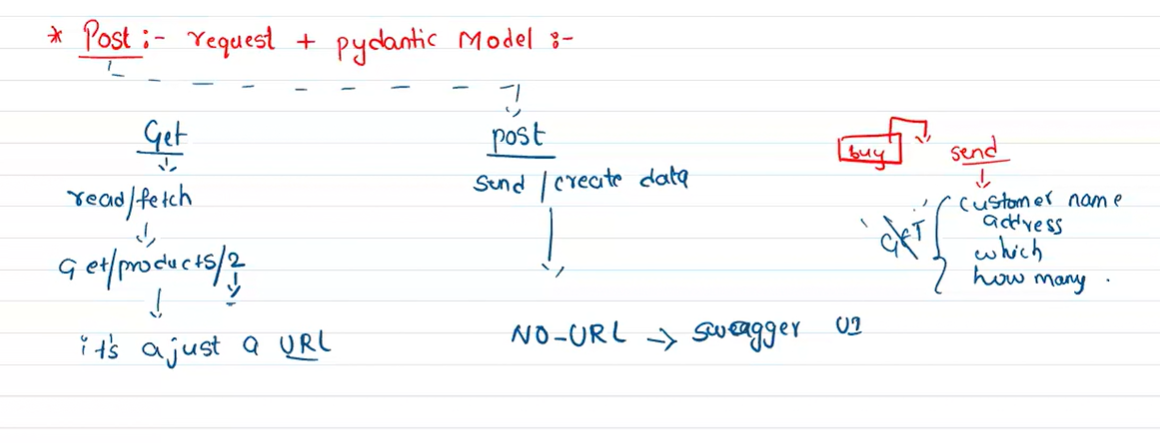 * Post :- request + pydantic Model :-
Get
read/fetch
Get/products/2
it's a just a URL
post
send / create data
NO-URL → sweagger UI
buy
send
GET
customer name
address
which
how many .